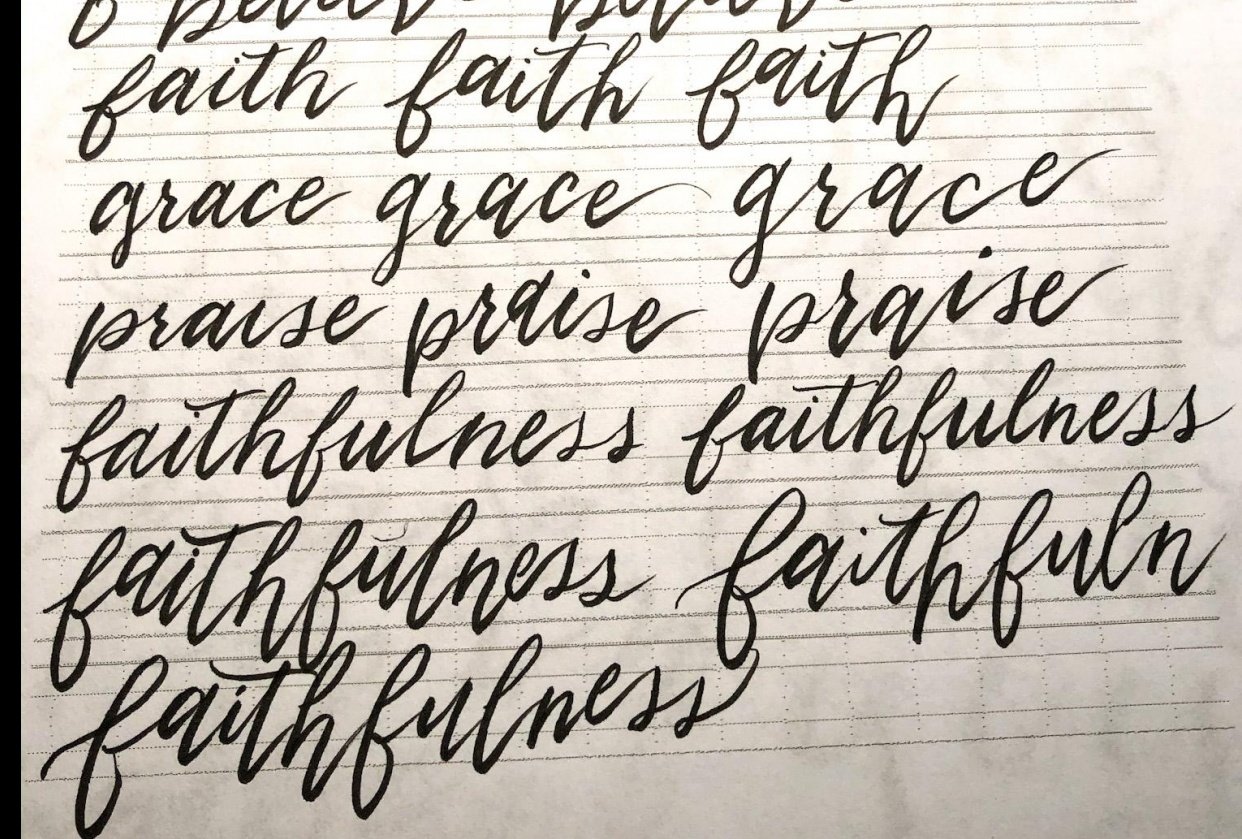 faith faith faith
grace grace grace
praise praise praise
faithfulness faithfulness
faithfulness faithfuln
faithfulness